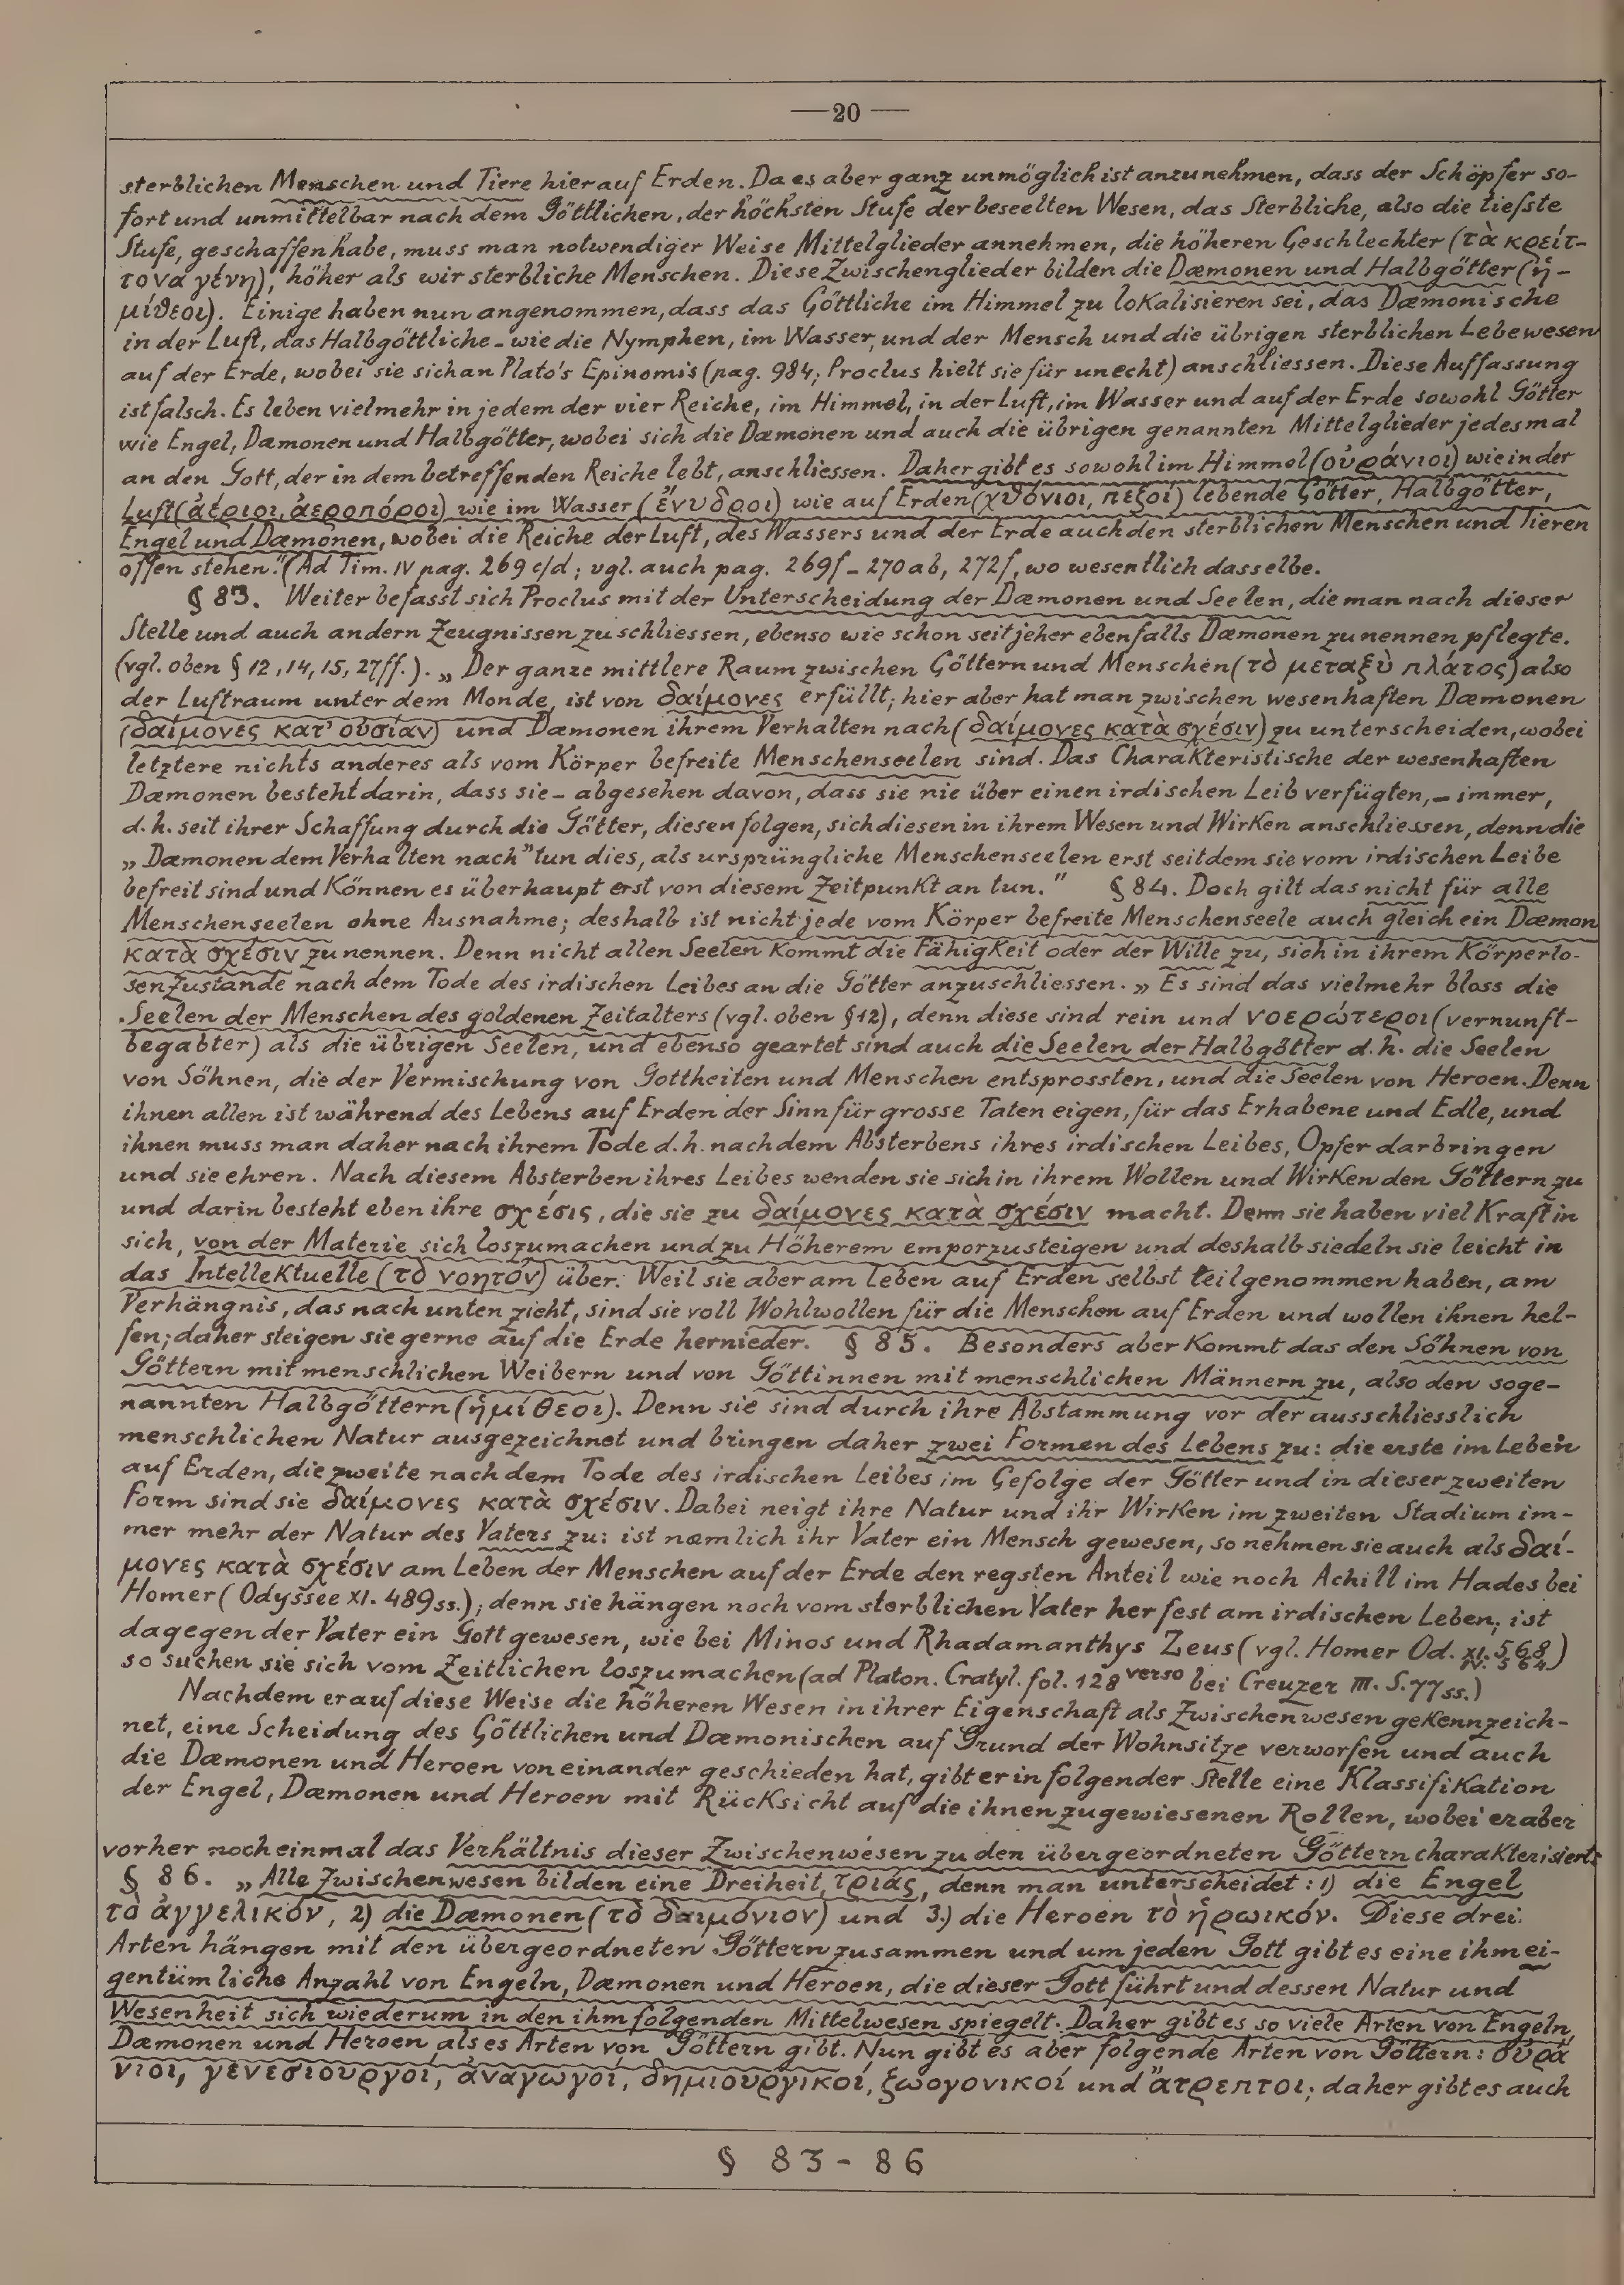 —20—
sterblichen Menschen und Tiere hier auf Erden. Da es aber ganz unmöglich ist anzunehmen, dass der Schöpfer so-
fort und unmittelbar nach dem Göttlichen, der höchsten Stufe der beseelten Wesen, das Sterbliche, also die tiefste
Stufe, geschaffen habe, muss man notwendiger Weise Mittelglieder annehmen, die höheren Geschlechter (τὰ κρείτ-
τονα γένη), höher als wir sterbliche Menschen. Diese Zwischenglieder bilden die Dæmonen und Halbgötter (ἡ-
μίθεοι). Einige haben nun angenommen, dass das Göttliche im Himmel zu lokalisieren sei, das Dæmonische
in der Luft, das Halbgöttliche - wie die Nymphen, im Wasser, und der Mensch und die übrigen sterblichen Lebewesen
auf der Erde, wobei sie sich an Plato's Epinomis (pag. 984; Proclus hielt sie für unecht) anschliessen. Diese Auffassung
ist falsch. Es leben vielmehr in jedem der vier Reiche, im Himmel, in der Luft, im Wasser und auf der Erde sowohl Götter
wie Engel, Dæmonen und Halbgötter, wobei sich die Dæmonen und auch die übrigen genannten Mittelglieder jedesmal
an den Gott, der in dem betreffenden Reiche lebt, anschliessen. Daher gibt es sowohl im Himmel (οὐράνιοι) wie in der
Luft (ἀέριοι, ἀεροπόροι) wie im Wasser (ἔνυδροι) wie auf Erden (χθόνιοι, πεζοί) lebende Götter, Halbgötter,
Engel und Dæmonen, wobei die Reiche der Luft, des Wassers und der Erde auch den sterblichen Menschen und Tieren
offen stehen." (Ad Tim. IV pag. 269 c/d; vgl. auch pag. 269f - 270 ab, 272f, wo wesentlich dasselbe.
§ 83. Weiter befasst sich Proclus mit der Unterscheidung der Dæmonen und Seelen, die man nach dieser
Stelle und auch andern Zeugnissen zu schliessen, ebenso wie schon seit jeher ebenfalls Dæmonen zu nennen pflegte.
(vgl. oben § 12, 14, 15, 27ff.). „Der ganze mittlere Raum zwischen Göttern und Menschen (τὸ μεταξὺ πλάτος) also
der Luftraum unter dem Monde, ist von δαίμονες erfüllt; hier aber hat man zwischen wesenhaften Dæmonen
(δαίμονες κατ' οὐσίαν) und Dæmonen ihrem Verhalten nach (δαίμονες κατὰ σχέσιν) zu unterscheiden, wobei
letztere nichts anderes als vom Körper befreite Menschenseelen sind. Das Charakteristische der wesenhaften
Dæmonen besteht darin, dass sie - abgesehen davon, dass sie nie über einen irdischen Leib verfügten, - immer,
d.h. seit ihrer Schaffung durch die Götter, diesen folgen, sich diesen in ihrem Wesen und Wirken anschliessen, denn die
„Dæmonen dem Verhalten nach" tun dies, als ursprüngliche Menschenseelen erst seitdem sie vom irdischen Leibe
befreit sind und können es überhaupt erst von diesem Zeitpunkt an tun." § 84. Doch gilt das nicht für alle
Menschenseelen ohne Ausnahme; deshalb ist nicht jede vom Körper befreite Menschenseele auch gleich ein Dæmon
κατὰ σχέσιν zu nennen. Denn nicht allen Seelen kommt die Fähigkeit oder der Wille zu, sich in ihrem Körperlo-
sen Zustande nach dem Tode des irdischen Leibes an die Götter anzuschliessen. „Es sind das vielmehr bloss die
Seelen der Menschen des goldenen Zeitalters (vgl. oben §12), denn diese sind rein und νοερώτεροι (vernunft-
begabter) als die übrigen Seelen, und ebenso geartet sind auch die Seelen der Halbgötter d.h. die Seelen
von Söhnen, die der Vermischung von Gottheiten und Menschen entsprossten, und die Seelen von Heroen. Denn
ihnen allen ist während des Lebens auf Erden der Sinn für grosse Taten eigen, für das Erhabene und Edle, und
ihnen muss man daher nach ihrem Tode d.h. nach dem Absterbens ihres irdischen Leibes, Opfer darbringen
und sie ehren. Nach diesem Absterben ihres Leibes wenden sie sich in ihrem Wollen und Wirken den Göttern zu
und darin besteht eben ihre σχέσις, die sie zu δαίμονες κατὰ σχέσιν macht. Denn sie haben viel Kraft in
sich, von der Materie sich loszumachen und zu Höherem emporzusteigen und deshalb siedeln sie leicht in
das Intellektuelle (τὸ νοητόν) über. Weil sie aber am Leben auf Erden selbst teilgenommen haben, am
Verhängnis, das nach unten zieht, sind sie voll Wohlwollen für die Menschen auf Erden und wollen ihnen hel-
fen; daher steigen sie gerne auf die Erde hernieder. § 85. Besonders aber kommt das den Söhnen von
Göttern mit menschlichen Weibern und von Göttinnen mit menschlichen Männern zu, also den soge-
nannten Halbgöttern (ἡμίθεοι). Denn sie sind durch ihre Abstammung vor der ausschliesslich
menschlichen Natur ausgezeichnet und bringen daher zwei Formen des Lebens zu: die erste im Leben
auf Erden, die zweite nach dem Tode des irdischen Leibes im Gefolge der Götter und in dieser zweiten
Form sind sie δαίμονες κατὰ σχέσιν. Dabei neigt ihre Natur und ihr Wirken im zweiten Stadium im-
mer mehr der Natur des Vaters zu: ist næmlich ihr Vater ein Mensch gewesen, so nehmen sie auch als δαί-
μονες κατὰ σχέσιν am Leben der Menschen auf der Erde den regsten Anteil wie noch Achill im Hades bei
Homer (Odyssee XI. 489ss.); denn sie hängen noch vom sterblichen Vater her fest am irdischen Leben; ist
dagegen der Vater ein Gott gewesen, wie bei Minos und Rhadamanthys Zeus (vgl. Homer Od. XI. 568 IV. 564)
so suchen sie sich vom Zeitlichen loszumachen (ad Platon. Cratyl. fol. 128 verso bei Creuzer III. S. 77ss.)
Nachdem er auf diese Weise die höheren Wesen in ihrer Eigenschaft als Zwischenwesen gekennzeich-
net, eine Scheidung des Göttlichen und Dæmonischen auf Grund der Wohnsitze verworfen und auch
die Dæmonen und Heroen voneinander geschieden hat, gibt er in folgender Stelle eine Klassifikation
der Engel, Dæmonen und Heroen mit Rücksicht auf die ihnen zugewiesenen Rollen, wobei er aber
vorher noch einmal das Verhältnis dieser Zwischenwesen zu den übergeordneten Göttern charakterisiert:
§ 86. „Alle Zwischenwesen bilden eine Dreiheit, τριάς, denn man unterscheidet: 1) die Engel
τὸ ἀγγελικόν, 2) die Dæmonen (τὸ δαιμόνιον) und 3.) die Heroen τὸ ἡρωικόν. Diese drei
Arten hängen mit den übergeordneten Göttern zusammen und um jeden Gott gibt es eine ihm ei-
gentümliche Anzahl von Engeln, Dæmonen und Heroen, die dieser Gott führt und dessen Natur und
Wesenheit sich wiederum in den ihm folgenden Mittelwesen spiegelt. Daher gibt es so viele Arten von Engeln,
Dæmonen und Heroen, als es Arten von Göttern gibt. Nun gibt es aber folgende Arten von Göttern: οὐρά
νιοι, γενεσιουργοί, ἀναγωγοί, δημιουργικοί, ξωογονικοί und ἄτρεπτοι; daher gibt es auch
§ 83 - 86